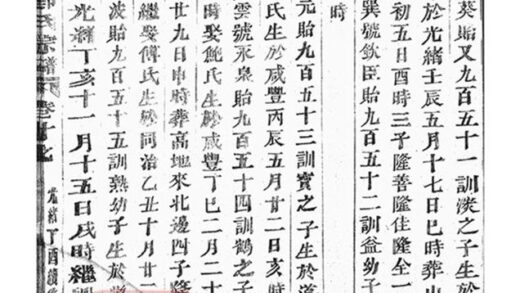 葵貽又九百五十一訓淡之子生於
於光緒壬辰五月十七日巳時葬山
初五日酉時三子隆善隆佳隆全一
巽號欽臣貽九百五十二訓益幼子
時
元貽九百五十三訓實之子生於道
氏生於咸豐丙辰五月廿二日亥時
雲號永泉貽九百五十四訓鶴之子
時娶鮑氏生於咸豐丁巳二月二十
廿九日申時葬高地來北邊四子隆
繼娶傅氏生於同治乙丑十月廿二
波貽九百五十五訓熱幼子生於
光緒丁亥十一月十五日戌時繼
氏宗譜 卷十七 光緒丁酉續